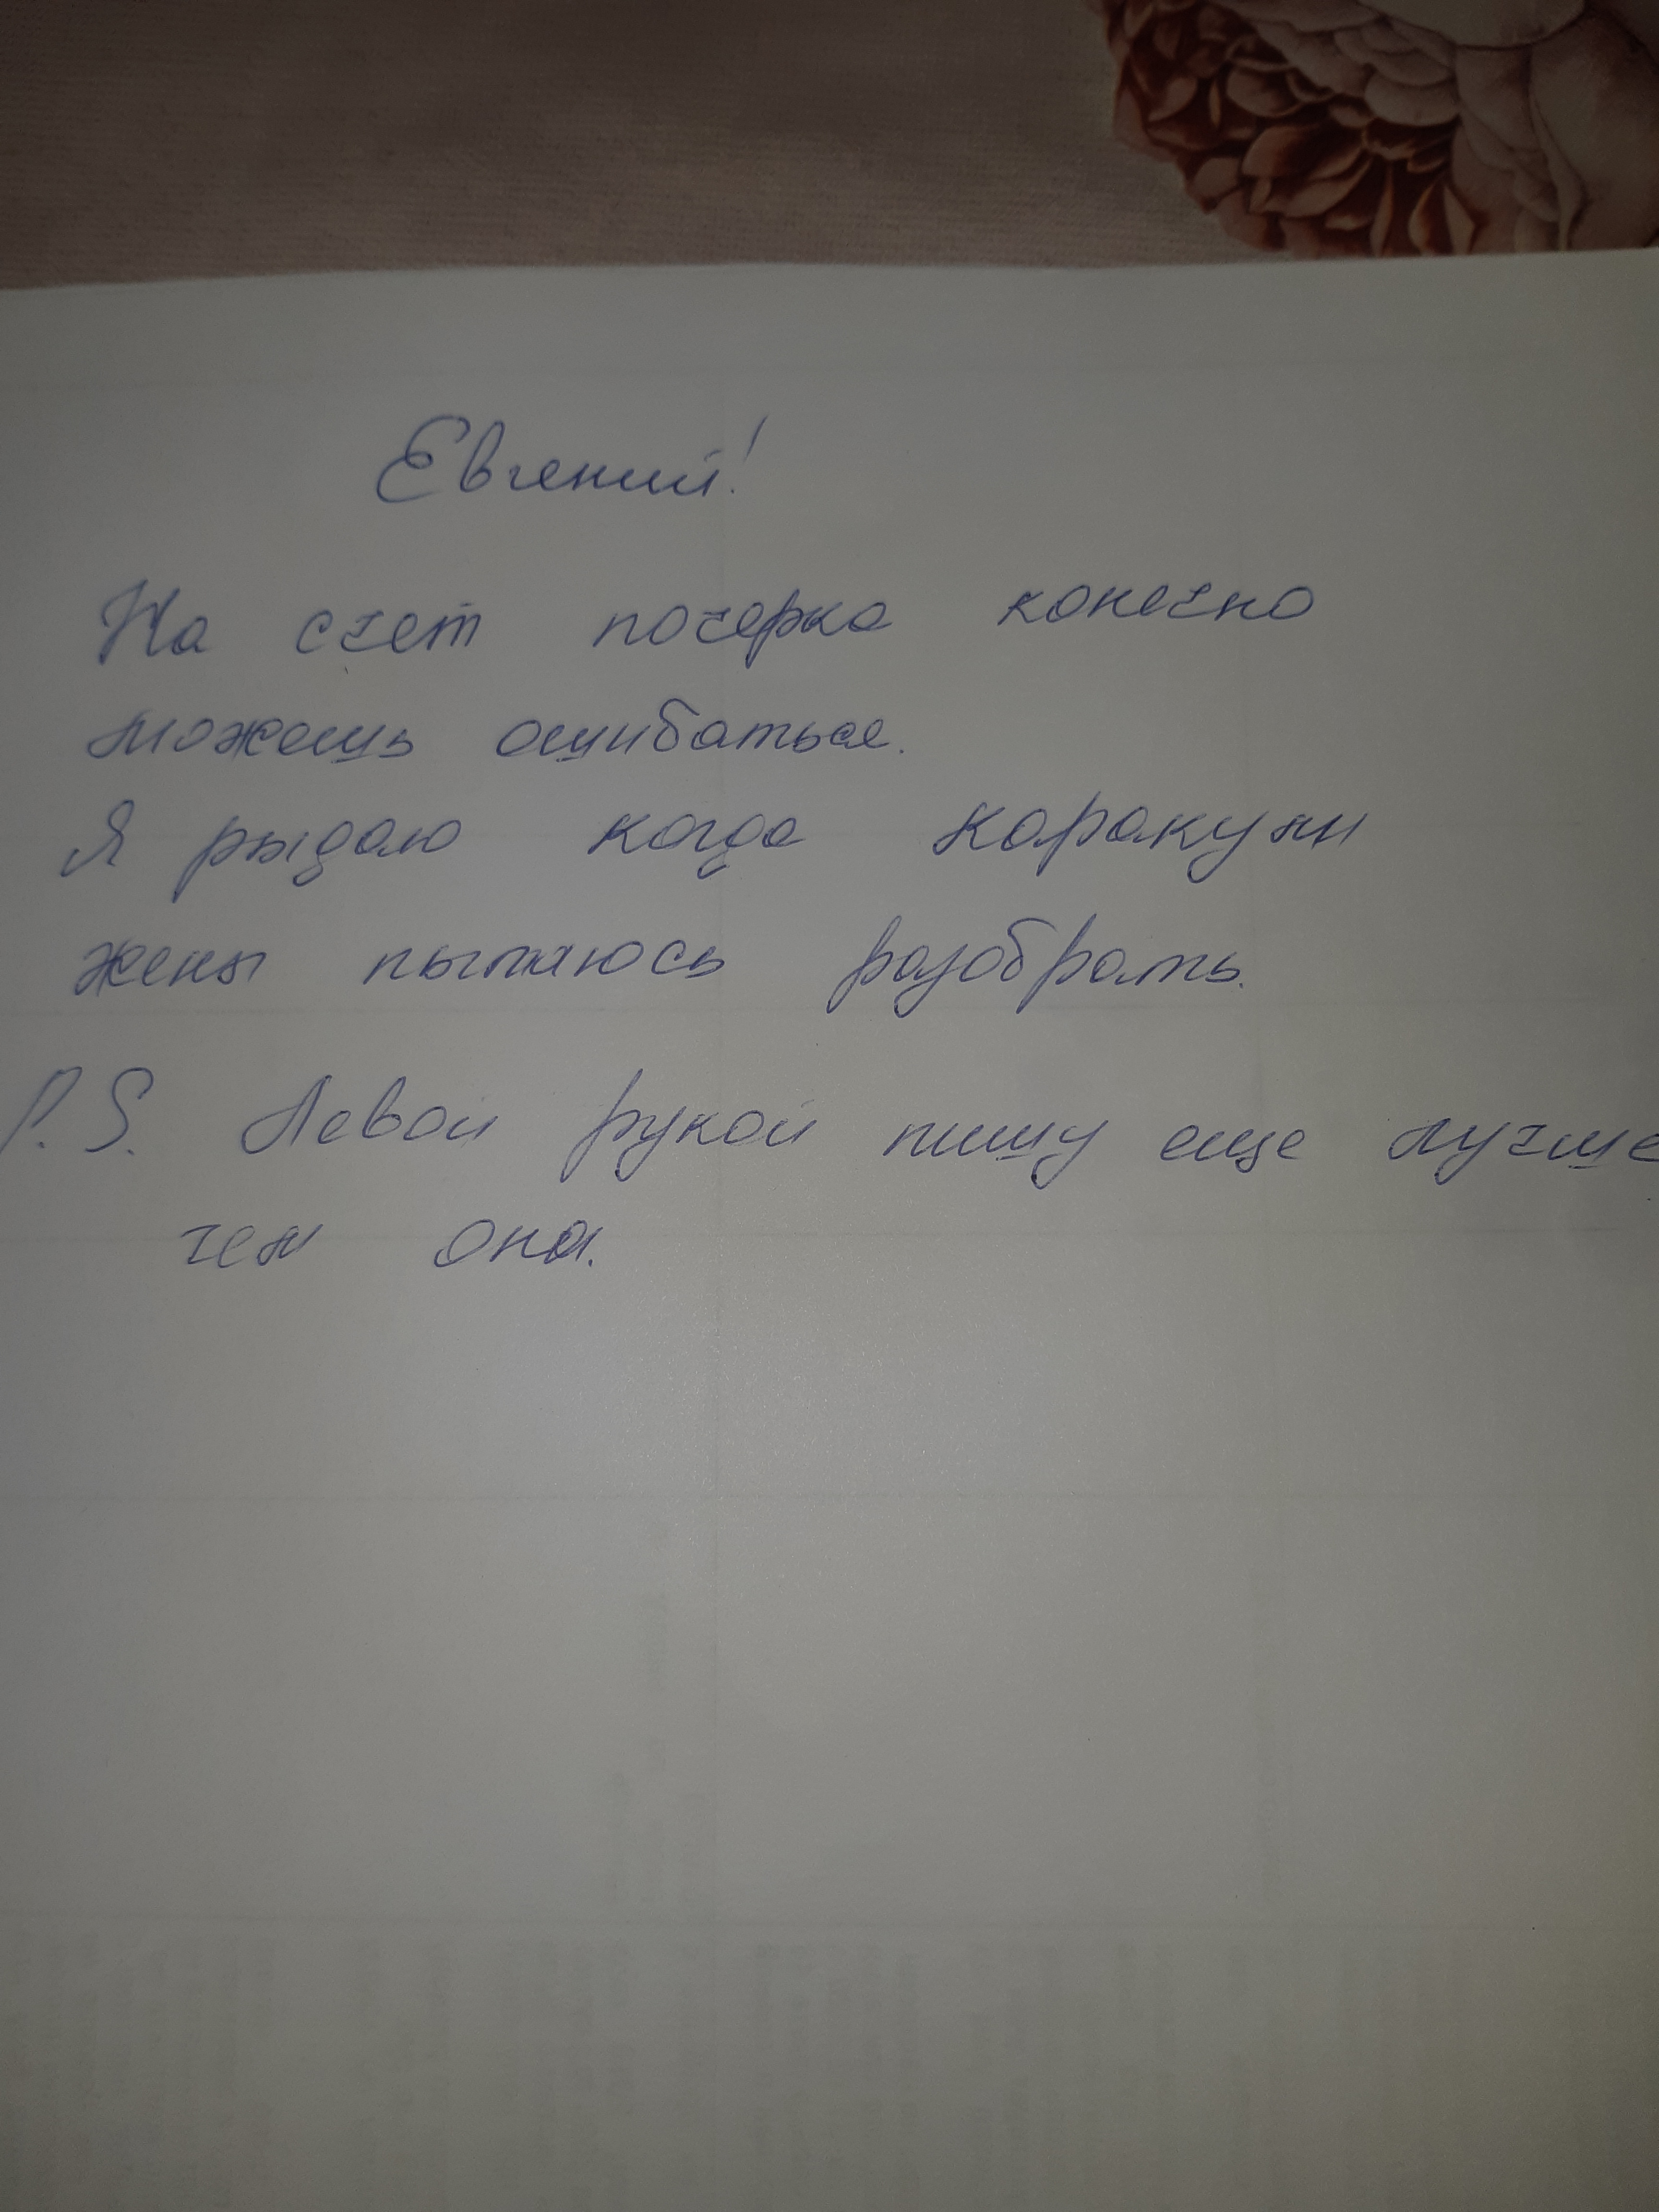 Евгений!
На счет почерка конечно
можешь ошибаться.
Я рыдаю когда каракули
жены пытаюсь разобрать.
P.S. Левой рукой пишу еще лучше
чем она.